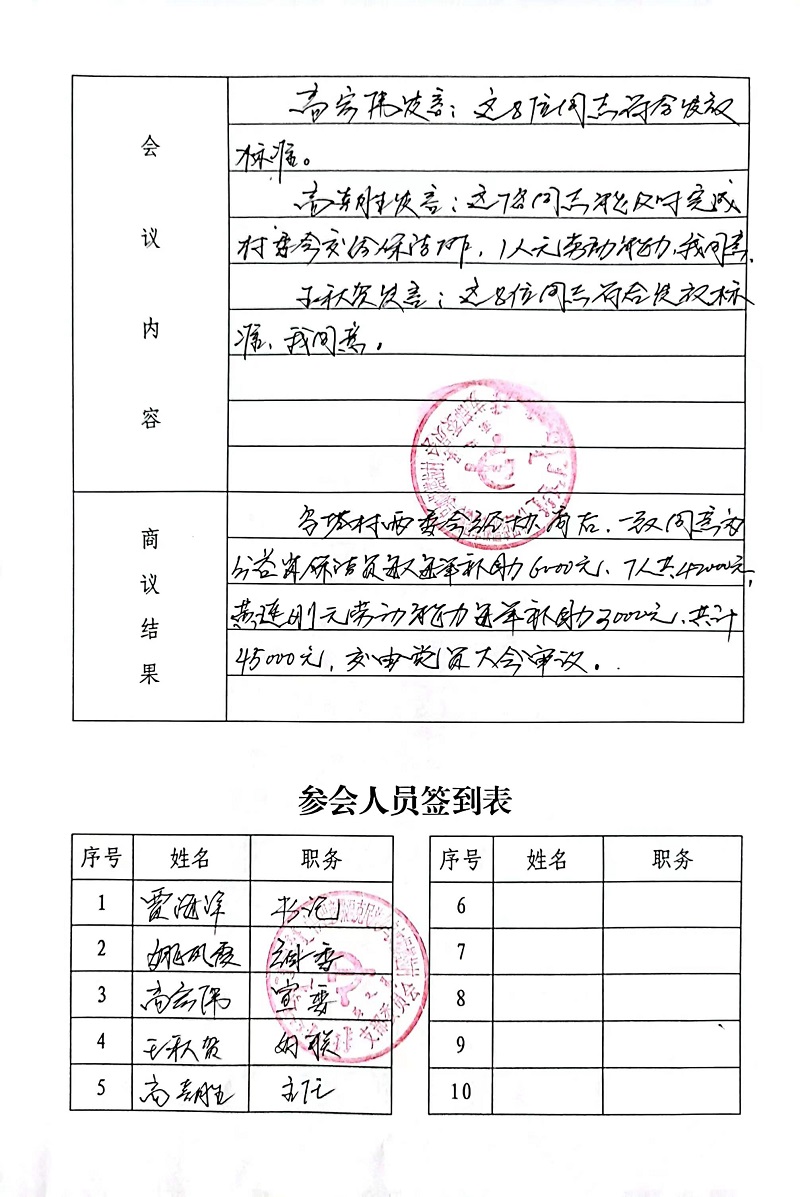 会议内容
高宏伟发言：这8位同志符合发放
标准。
高朝胜发言：这7名同志能及时完成
村委会交给保洁工作，1人无劳动能力，我同意。
王秋贺发言：这8位同志符合发放标
准，我同意。
商议结果
村两委会经协商后，一致同意为
公益岗保洁员每人每年补助6000元，7人共42000元，
黄连刚无劳动能力每年补助3000元，共计
45000元，交由党员大会审议。
参会人员签到表
序号 姓名 职务
1 贾海洋 书记
2 姚凤霞 组委
3 高宏伟 宣委
4 王秋贺 妇联
5 高朝胜 主任
序号 姓名 职务
6
7
8
9
10